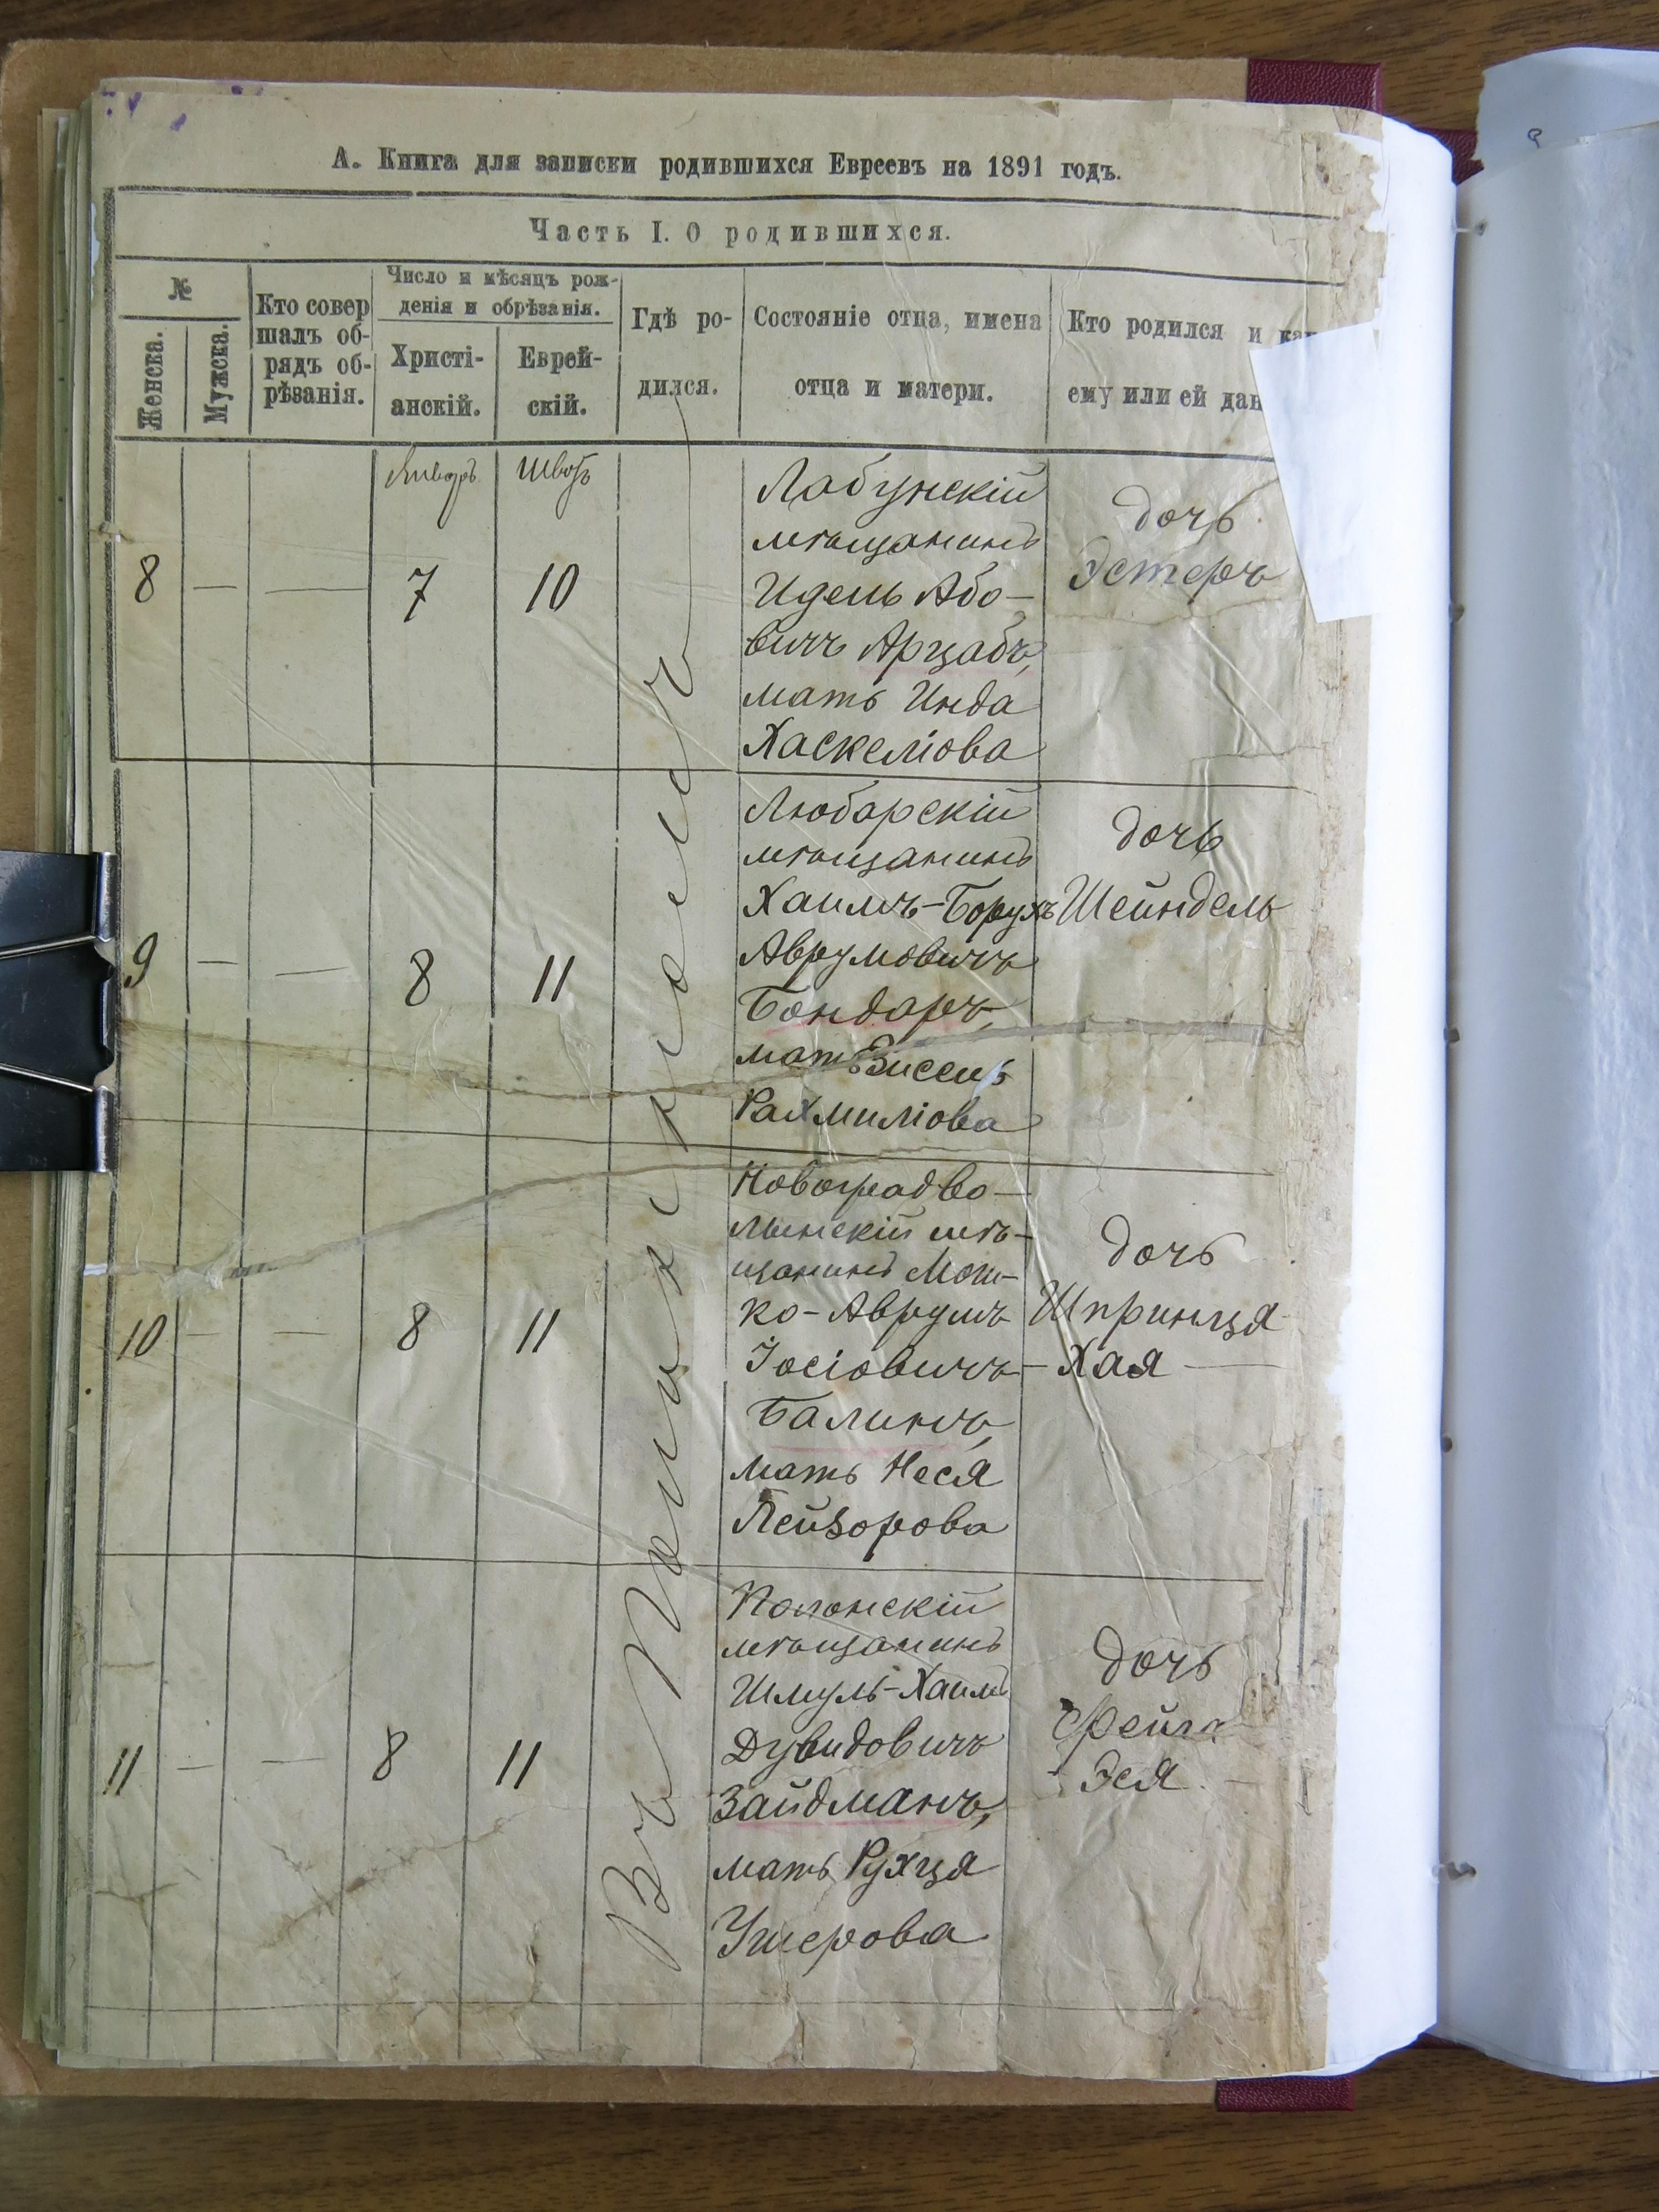 А. Книга для записки родившихся Евреевъ на 1891 годъ.
Часть I. О родившихся.
№
Женска.
Мужска.
Кто совер
шалъ об-
рядъ об-
рѣзанія.
Число и мѣсяцъ рож-
денія и обрѣзанія.
Христі-
анскій.
Еврей-
скій.
Гдѣ ро-
дился.
Состояніе отца, имена
отца и матери.
Кто родился и как
ему или ей дан
Январь
Шватъ
8 — — 7 10
Лабунскій
мѣщанинъ
Идель Або-
вичъ Арцабъ,
мать Инда
Хаскеліова
дочь
Эстеръ
9 — — 8 11
Любарскій
мѣщанинъ
Хаимъ-Борухъ
Аврумовичъ
Бондаръ,
мать Зиссель
Рахмиліова
дочь
Шейндель
10 — — 8 11
Новоградво-
лынскій мѣ-
щанинъ Мош-
ко-Аврумъ
Іосіовичъ
Балинъ,
мать Неся
Лейзорова
дочь
Шпринця-
Хая
11 — — 8 11
Полонскій
мѣщанинъ
Шмуль-Хаимъ
Дувидовичъ
Зайдманъ,
мать Рухця
Ушерова
дочь
Фейга
Эся
Въ